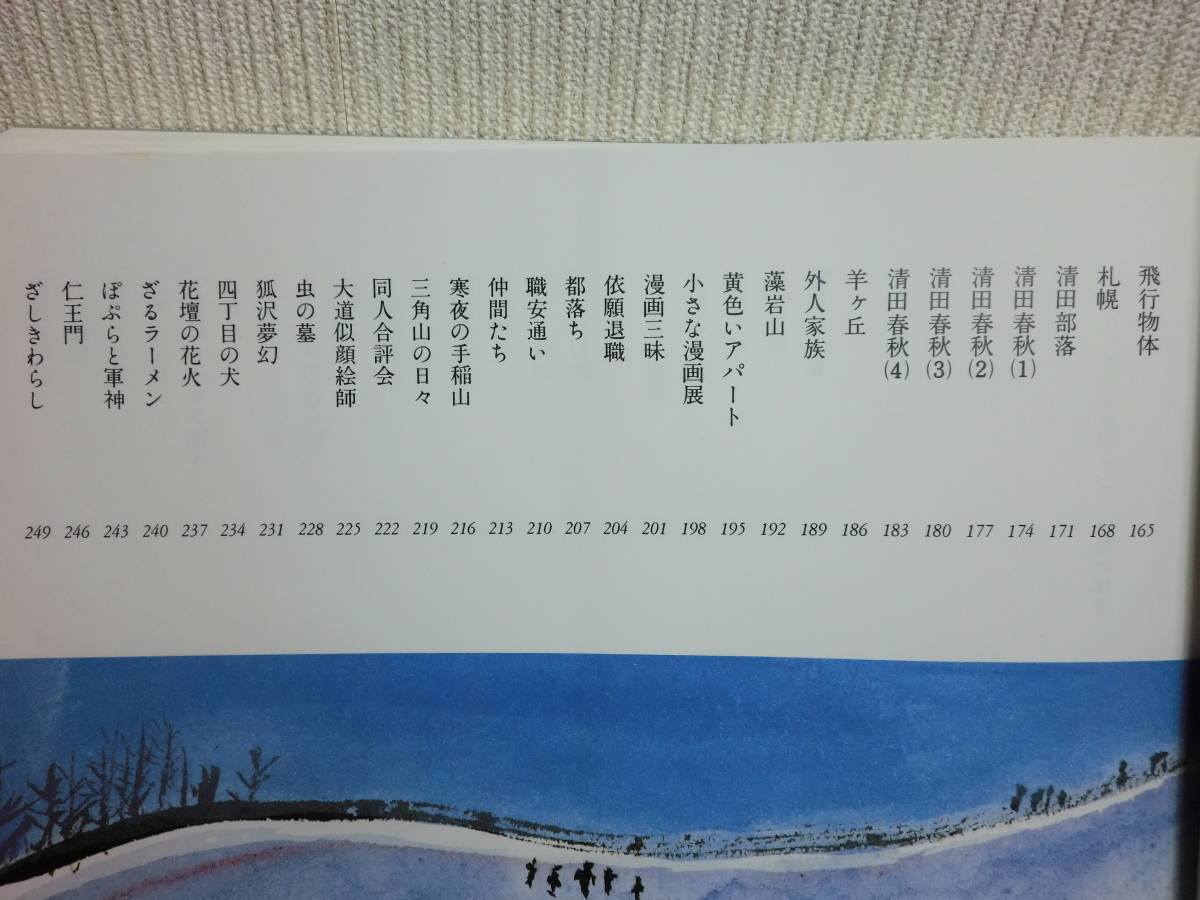 飛行物体 165
札幌 168
清田部落 171
清田春秋(1) 174
清田春秋(2) 177
清田春秋(3) 180
清田春秋(4) 183
羊ヶ丘 186
外人家族 189
藻岩山 192
黄色いアパート 195
小さな漫画展 198
漫画三昧 201
依願退職 204
都落ち 207
職安通い 210
仲間たち 213
寒夜の手稲山 216
三角山の日々 219
同人合評会 222
大道似顔絵師 225
虫の墓 228
狐沢夢幻 231
四丁目の犬 234
花壇の花火 237
ざるラーメン 240
ぽぷらと軍神 243
仁王門 246
ざしきわらし 249